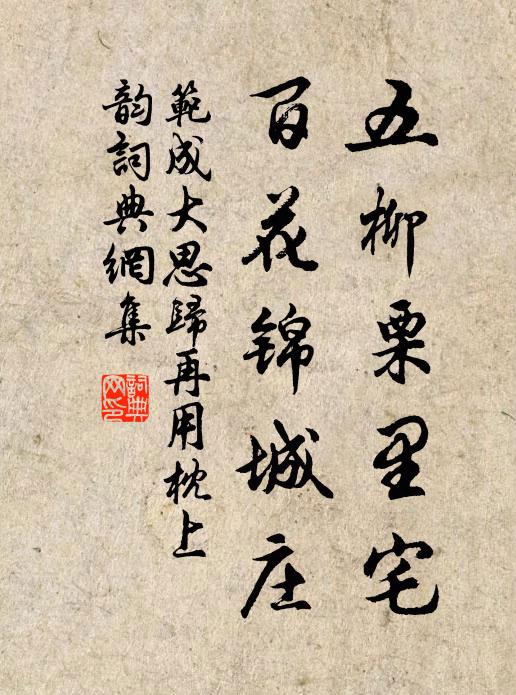 五柳栗里宅
百花錦城庄
範成大思歸再用枕上
韵詞典網集
詞典
网印